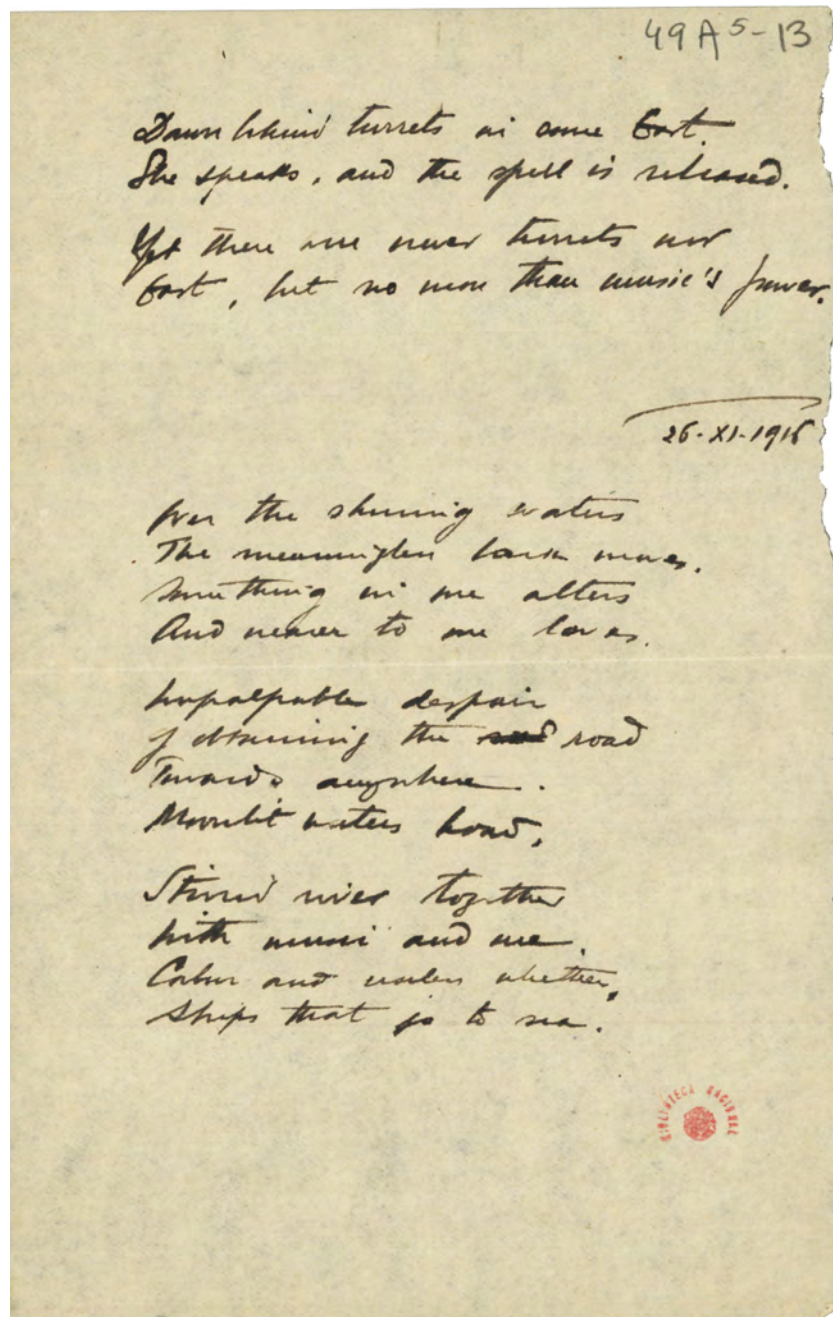 49A5-13
Dawn behind turrets in some East.
She speaks, and the spell is released.
Yet there are never turrets nor
East, but no more than music's power.
26-XI-1916
Over the shining waters
The meaningless bark moves.
Something in me alters
And nearer to me loves.
Impalpable despair
Of obtaining the road
Towards anywhere.
Moonlit waters
Stirred together
With music and me.
and whether,
Ships that go to sea.
BIBLIOTECA NACIONAL